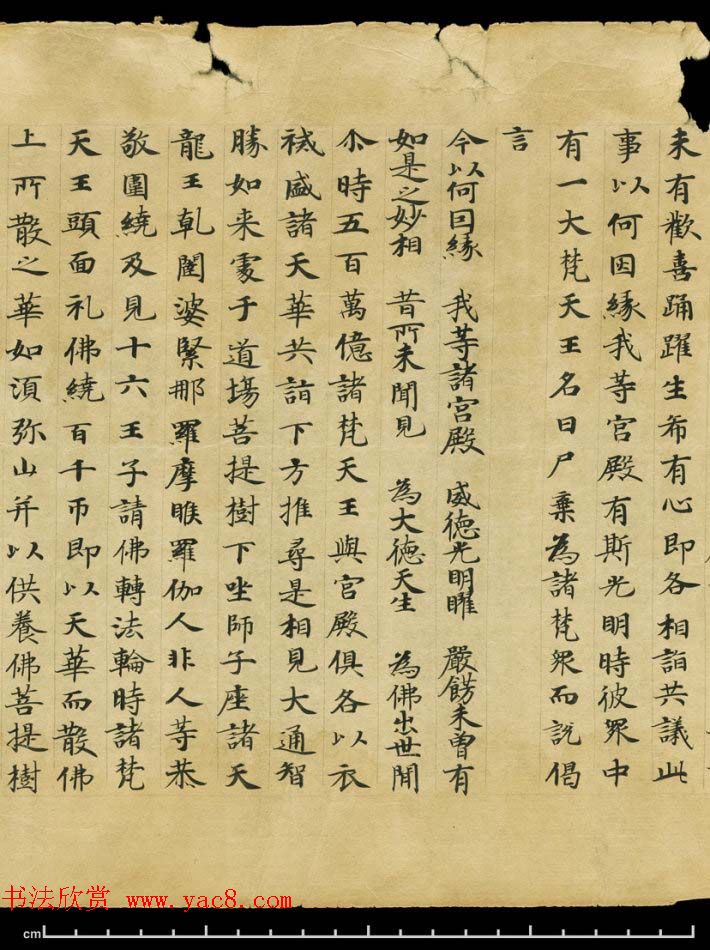 未有歡喜踊躍生希有心即各相詣共議此
事以何因緣我等宮殿有斯光明時彼眾中
有一大梵天王名曰尸棄為諸梵眾而說偈
言
今以何因緣 我等諸宮殿 威德光明曜 嚴餝未曾有
如是之妙相 昔所未聞見 為大德天生 為佛出世聞
尒時五百萬億諸梵天王與宮殿俱各以衣
祴盛諸天華共詣下方推尋是相見大通智
勝如來處于道場菩提樹下坐師子座諸天
龍王乹闥婆緊那羅摩睺羅伽人非人等恭
敬圍繞及見十六王子請佛轉法輪時諸梵
天王頭面礼佛繞百千帀即以天華而散佛
上所散之華如湏弥山并以供養佛菩提樹
书法欣赏 www.yac8.com
cm